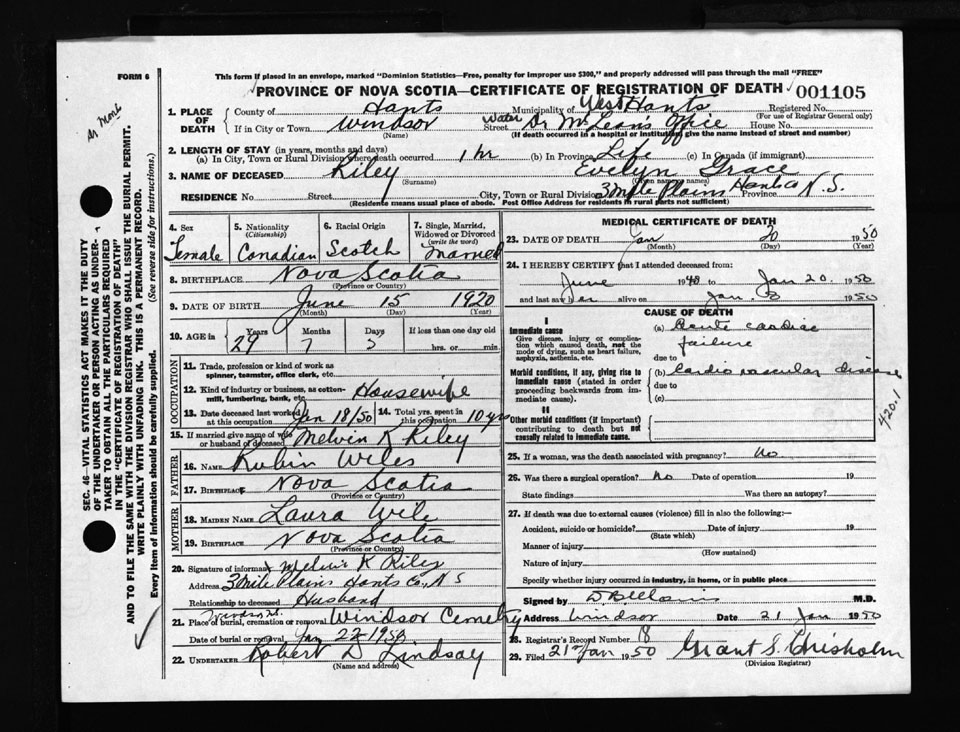 FORM 6
This form if placed in an envelope, marked "Dominion Statistics—Free, penalty for improper use $300," and properly addressed will pass through the mail "FREE"
PROVINCE OF NOVA SCOTIA—CERTIFICATE OF REGISTRATION OF DEATH
001105
1. PLACE OF DEATH
County of Hants Municipality of West Hants Registered No.
(For use of Registrar General only)
If in City or Town Windsor (Name) Street Water Dr McLean's Office House No.
(If death occurred in a hospital or institution, give the name instead of street and number)
2. LENGTH OF STAY (in years, months and days)
(a) In City, Town or Rural Division where death occurred 1 hr (b) In Province Life (c) In Canada (if immigrant)
3. NAME OF DECEASED Riley (Surname) Evelyn Grace (Given or names)
RESIDENCE No. Street City, Town or Rural Division 3 Mile Plains Hants Co Province N.S.
(Residence means usual place of abode. Post Office Address for residents in rural parts not sufficient)
4. Sex Female
5. Nationality (Citizenship) Canadian
6. Racial Origin Scotch
7. Single, Married, Widowed or Divorced (write the word) Married
8. BIRTHPLACE Nova Scotia
(Province or Country)
9. DATE OF BIRTH June 15 1920
(Month) (Day) (Year)
10. AGE in Years 29 Months 7 Days 5 If less than one day old hrs. or min.
OCCUPATION
11. Trade, profession or kind of work as spinner, teamster, office clerk, etc.
12. Kind of industry or business, as cotton-mill, lumbering, bank, etc. Housewife
13. Date deceased last worked at this occupation Jan 18/50 14. Total yrs. spent in this occupation 10 yrs
15. If married give name of wife or husband of deceased Melvin K Riley
FATHER
16. NAME Rubin Wiles
17. Birthplace Nova Scotia
(Province or Country)
MOTHER
18. MAIDEN NAME Laura Wile
19. BIRTHPLACE Nova Scotia
(Province or Country)
20. Signature of informant Melvin K Riley
Address 3 Mile Plains Hants Co., N S
Relationship to deceased Husband
21. Place of burial, cremation or removal Windsor Cemetry
Date of burial or removal Jan 22-1950
22. UNDERTAKER Robert D Lindsay
(Name and address)
MEDICAL CERTIFICATE OF DEATH
23. DATE OF DEATH Jan 20 1950
(Month) (Day) (Year)
24. I HEREBY CERTIFY that I attended deceased from:
June 1940 to Jan 20. 1950
and last saw her alive on Jan. 1950
CAUSE OF DEATH
I
Immediate cause
Give disease, injury or complication which caused death, not the mode of dying, such as heart failure, asphyxia, asthenia, etc.
(a) Acute cardiac failure
due to
Morbid conditions, if any, giving rise to immediate cause (stated in order proceeding backwards from immediate cause).
(b) Cardio vascular disease
due to
(c)
420.1
II
Other morbid conditions (if important) contributing to death but not causally related to immediate cause.
25. If a woman, was the death associated with pregnancy? No
26. Was there a surgical operation? No Date of operation 19
State findings Was there an autopsy?
27. If death was due to external causes (violence) fill in also the following:—
Accident, suicide or homicide? Date of injury 19
(State which)
Manner of injury
(How sustained)
Nature of injury
Specify whether injury occurred in industry, in home, or in public place
Signed by M.D.
Address Windsor Date 21 Jan 1950
28. Registrar's Record Number 18
29. Filed 21st Jan 1950 Grant S. Chisholm
(Division Registrar)
SEC. 46—VITAL STATISTICS ACT MAKES IT THE DUTY
OF THE UNDERTAKER OR PERSON ACTING AS UNDER-
TAKER TO OBTAIN ALL THE PARTICULARS REQUIRED
IN THE "CERTIFICATE OF REGISTRATION OF DEATH"
AND TO FILE THE SAME WITH THE DIVISION REGISTRAR WHO SHALL ISSUE THE BURIAL PERMIT.
WRITE PLAINLY WITH UNFADING INK. THIS IS A PERMANENT RECORD.
Every item of information should be carefully supplied. (See reverse side for instructions.)